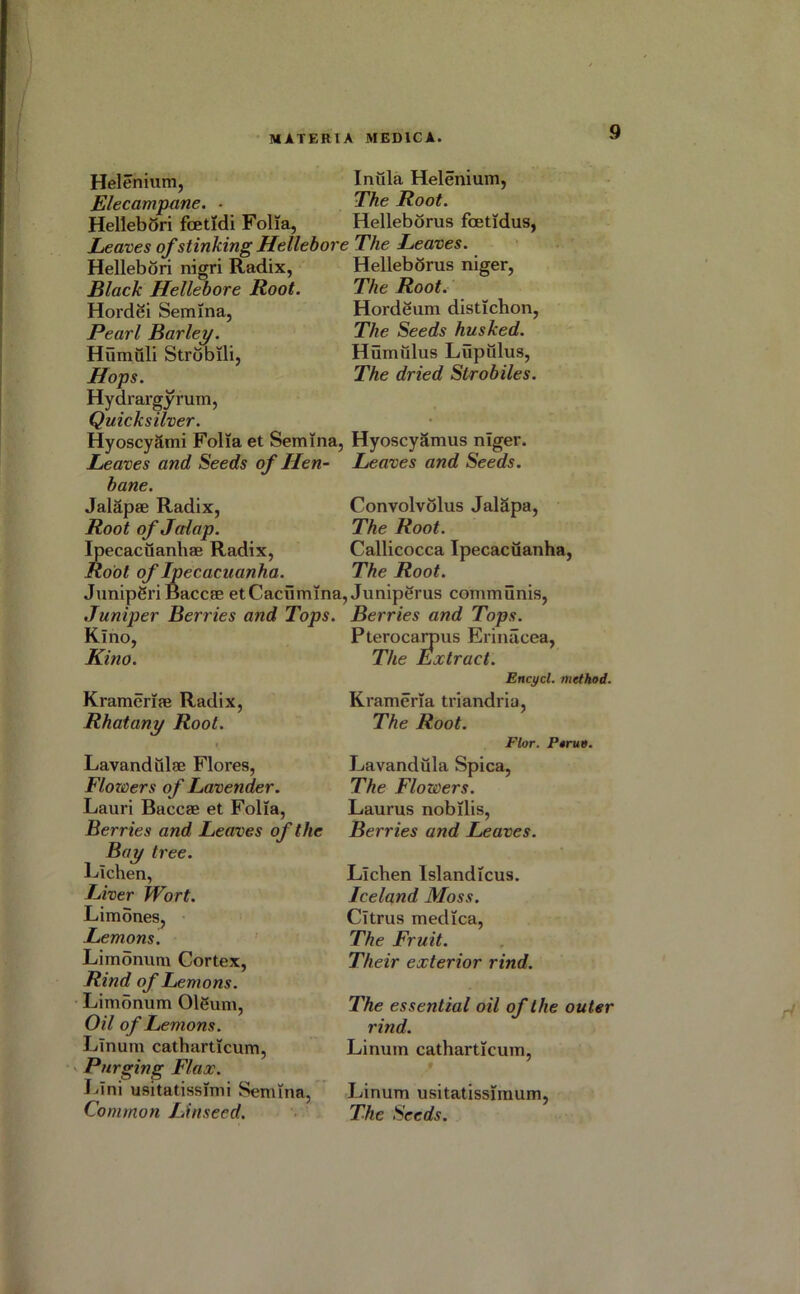 MATERIA MEDICA. 9
Helēnium, Inŭla Helēnium,
Elecampane. The Root.
Hellebŏri fœtĭdi Folĭa, Hellebŏrus fœtĭdus,
Leaves of stinking Hellebore The Leaves.
Hellebŏri nigri Radix, Hellebŏrus niger,
Black Hellebore Root. The Root.
Hordĕi Semĭna, Hordĕum distĭchon,
Pearl Barley. The Seeds husked.
Hūmŭli Strobĭli, Hūmŭlus Lūpŭlus,
Hops. The dried Strobiles.
Hydrargўrum,
Quicksilver.
Hyoscyămi Folĭa et Semĭna, Hyoscyămus nĭger.
Leaves and Seeds of Hen- Leaves and Seeds.
bane.
Jalăpæ Radix, Convolvŏlus Jalăpa,
Root of Jalap. The Root.
Ipecacŭanhæ Radix, Callicocca Ipecacŭanha,
Root of Ipecacuanha. The Root.
Junipĕri Baccæ et Cacūmĭna, Junipĕrus commūnis,
Juniper Berries and Tops. Berries and Tops.
Kīno, Pterocarpus Erinācea,
Kino. The Extract.
Encycl. method.
Kramērĭæ Radix, Kramērĭa triandria,
Rhatany Root. The Root.
Flor. Peruv.
Lavandŭlæ Flores, Lavandŭla Spica,
Flowers of Lavender. The Flowers.
Lauri Baccæ et Folĭa, Laurus nobĭlis,
Berries and Leaves of the Berries and Leaves.
Bay tree.
Līchen, Līchen Islandĭcus.
Liver Wort. Iceland Moss.
Limōnes, Cĭtrus medĭca,
Lemons. The Fruit.
Limōnum Cortex, Their exterior rind.
Rind of Lemons.
Limōnum Olĕum, The essential oil of the outer
Oil of Lemons. rind.
Līnum cathartĭcum, Linum cathartĭcum,
Purging Flax.
Līni usitatissĭmi Semĭna, Linum usitatissĭmum,
Common Linseed. The Seeds.